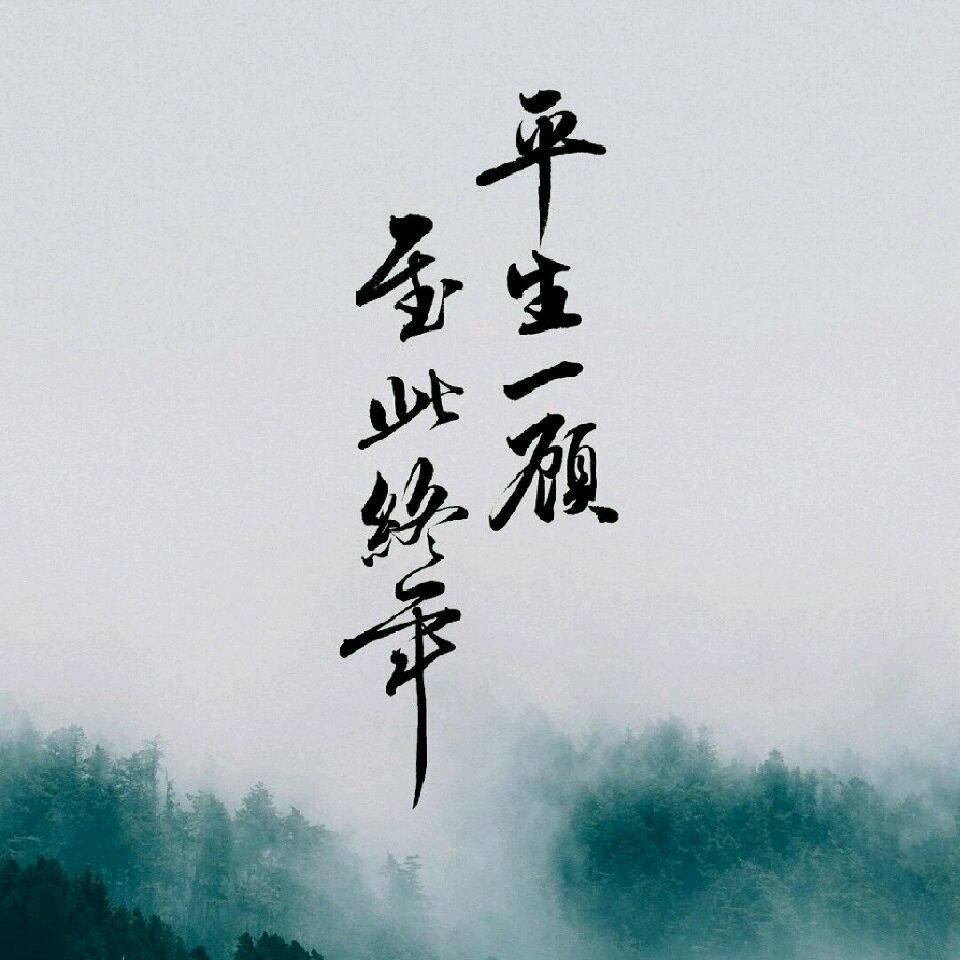 平生一顾
至此終年